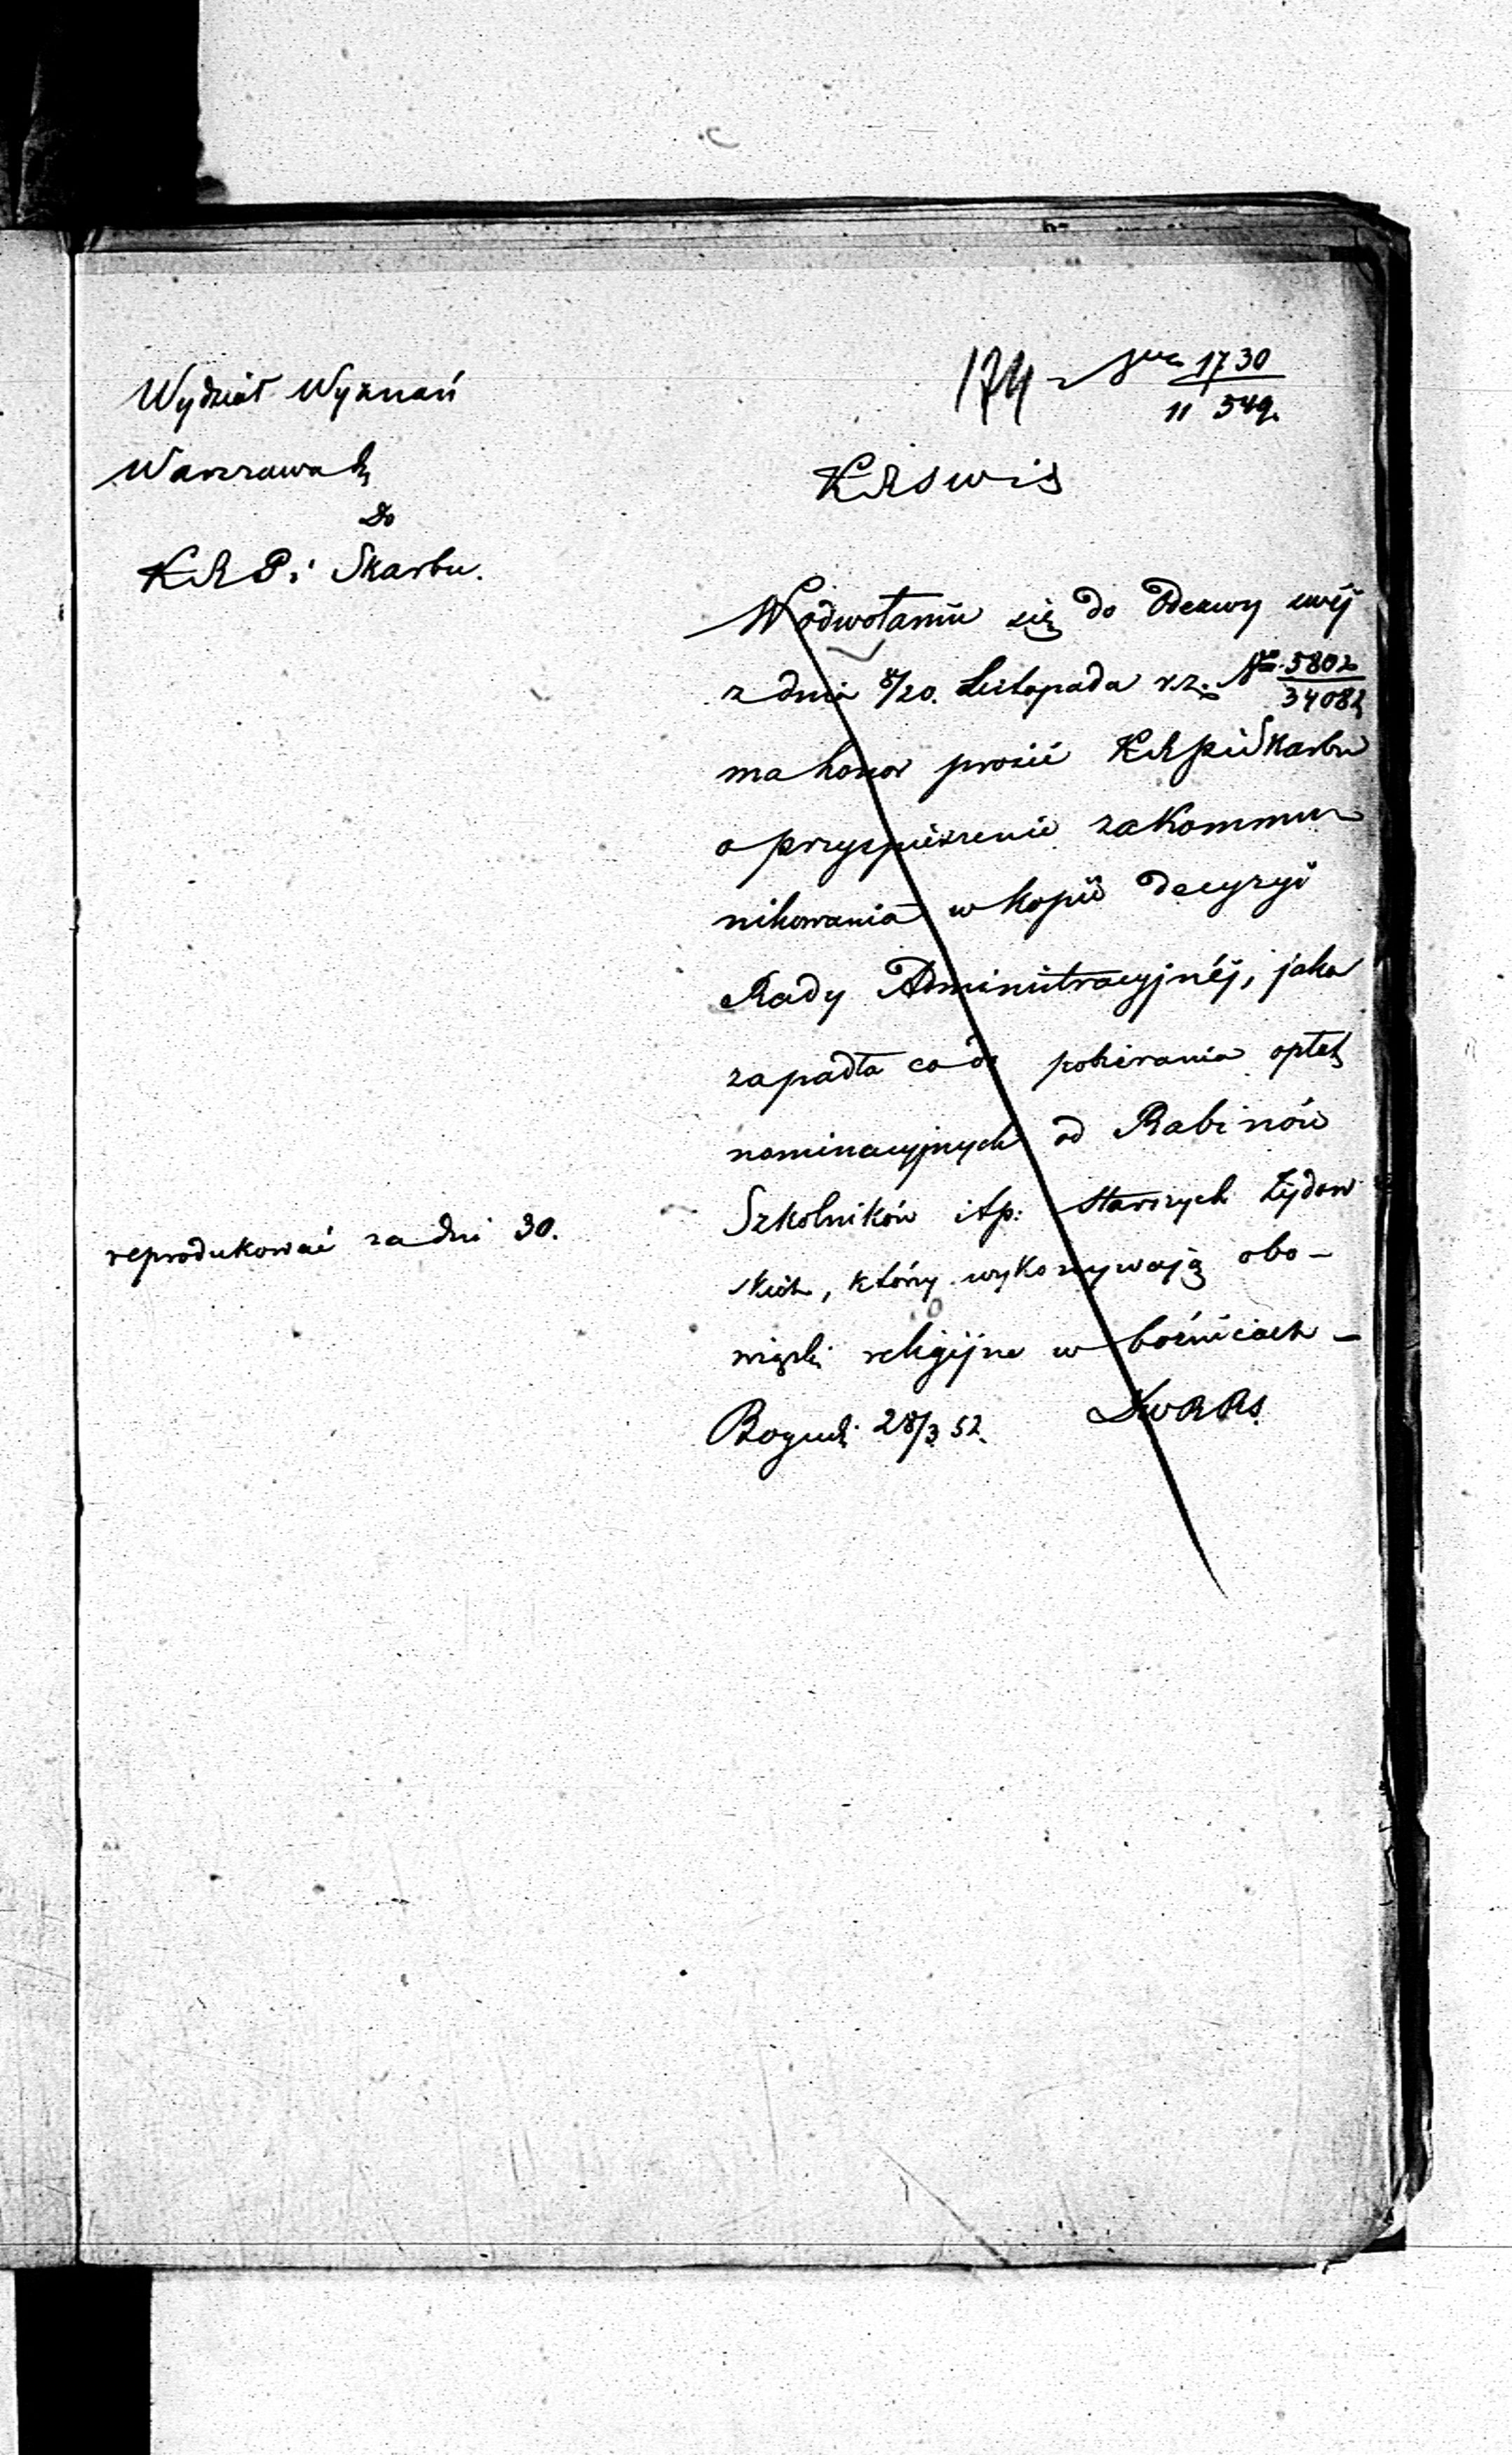 174
1730
11 549.
Wydział Wyznań
Warszawa d.
do
KRP i Skarbu.
KRSWiS
W odwołaniu się do Odezwy swéj
z dnia 8/20. Listopada r.z. No 5802
34082
ma honor prosić KRPiSkarbu
o przyspieszenie zakommu
nikowania w kopii decyzyi
Rady Administracyjnéj, jaka
zapadła co do pobierania opłat
nominacyjnych od Rabinów
Szkolników itp: starszych Żydow
skich, który wykonywają obo-
wiązki religijne w bożnicach –
reprodukować za dni 30.
28/3 52.